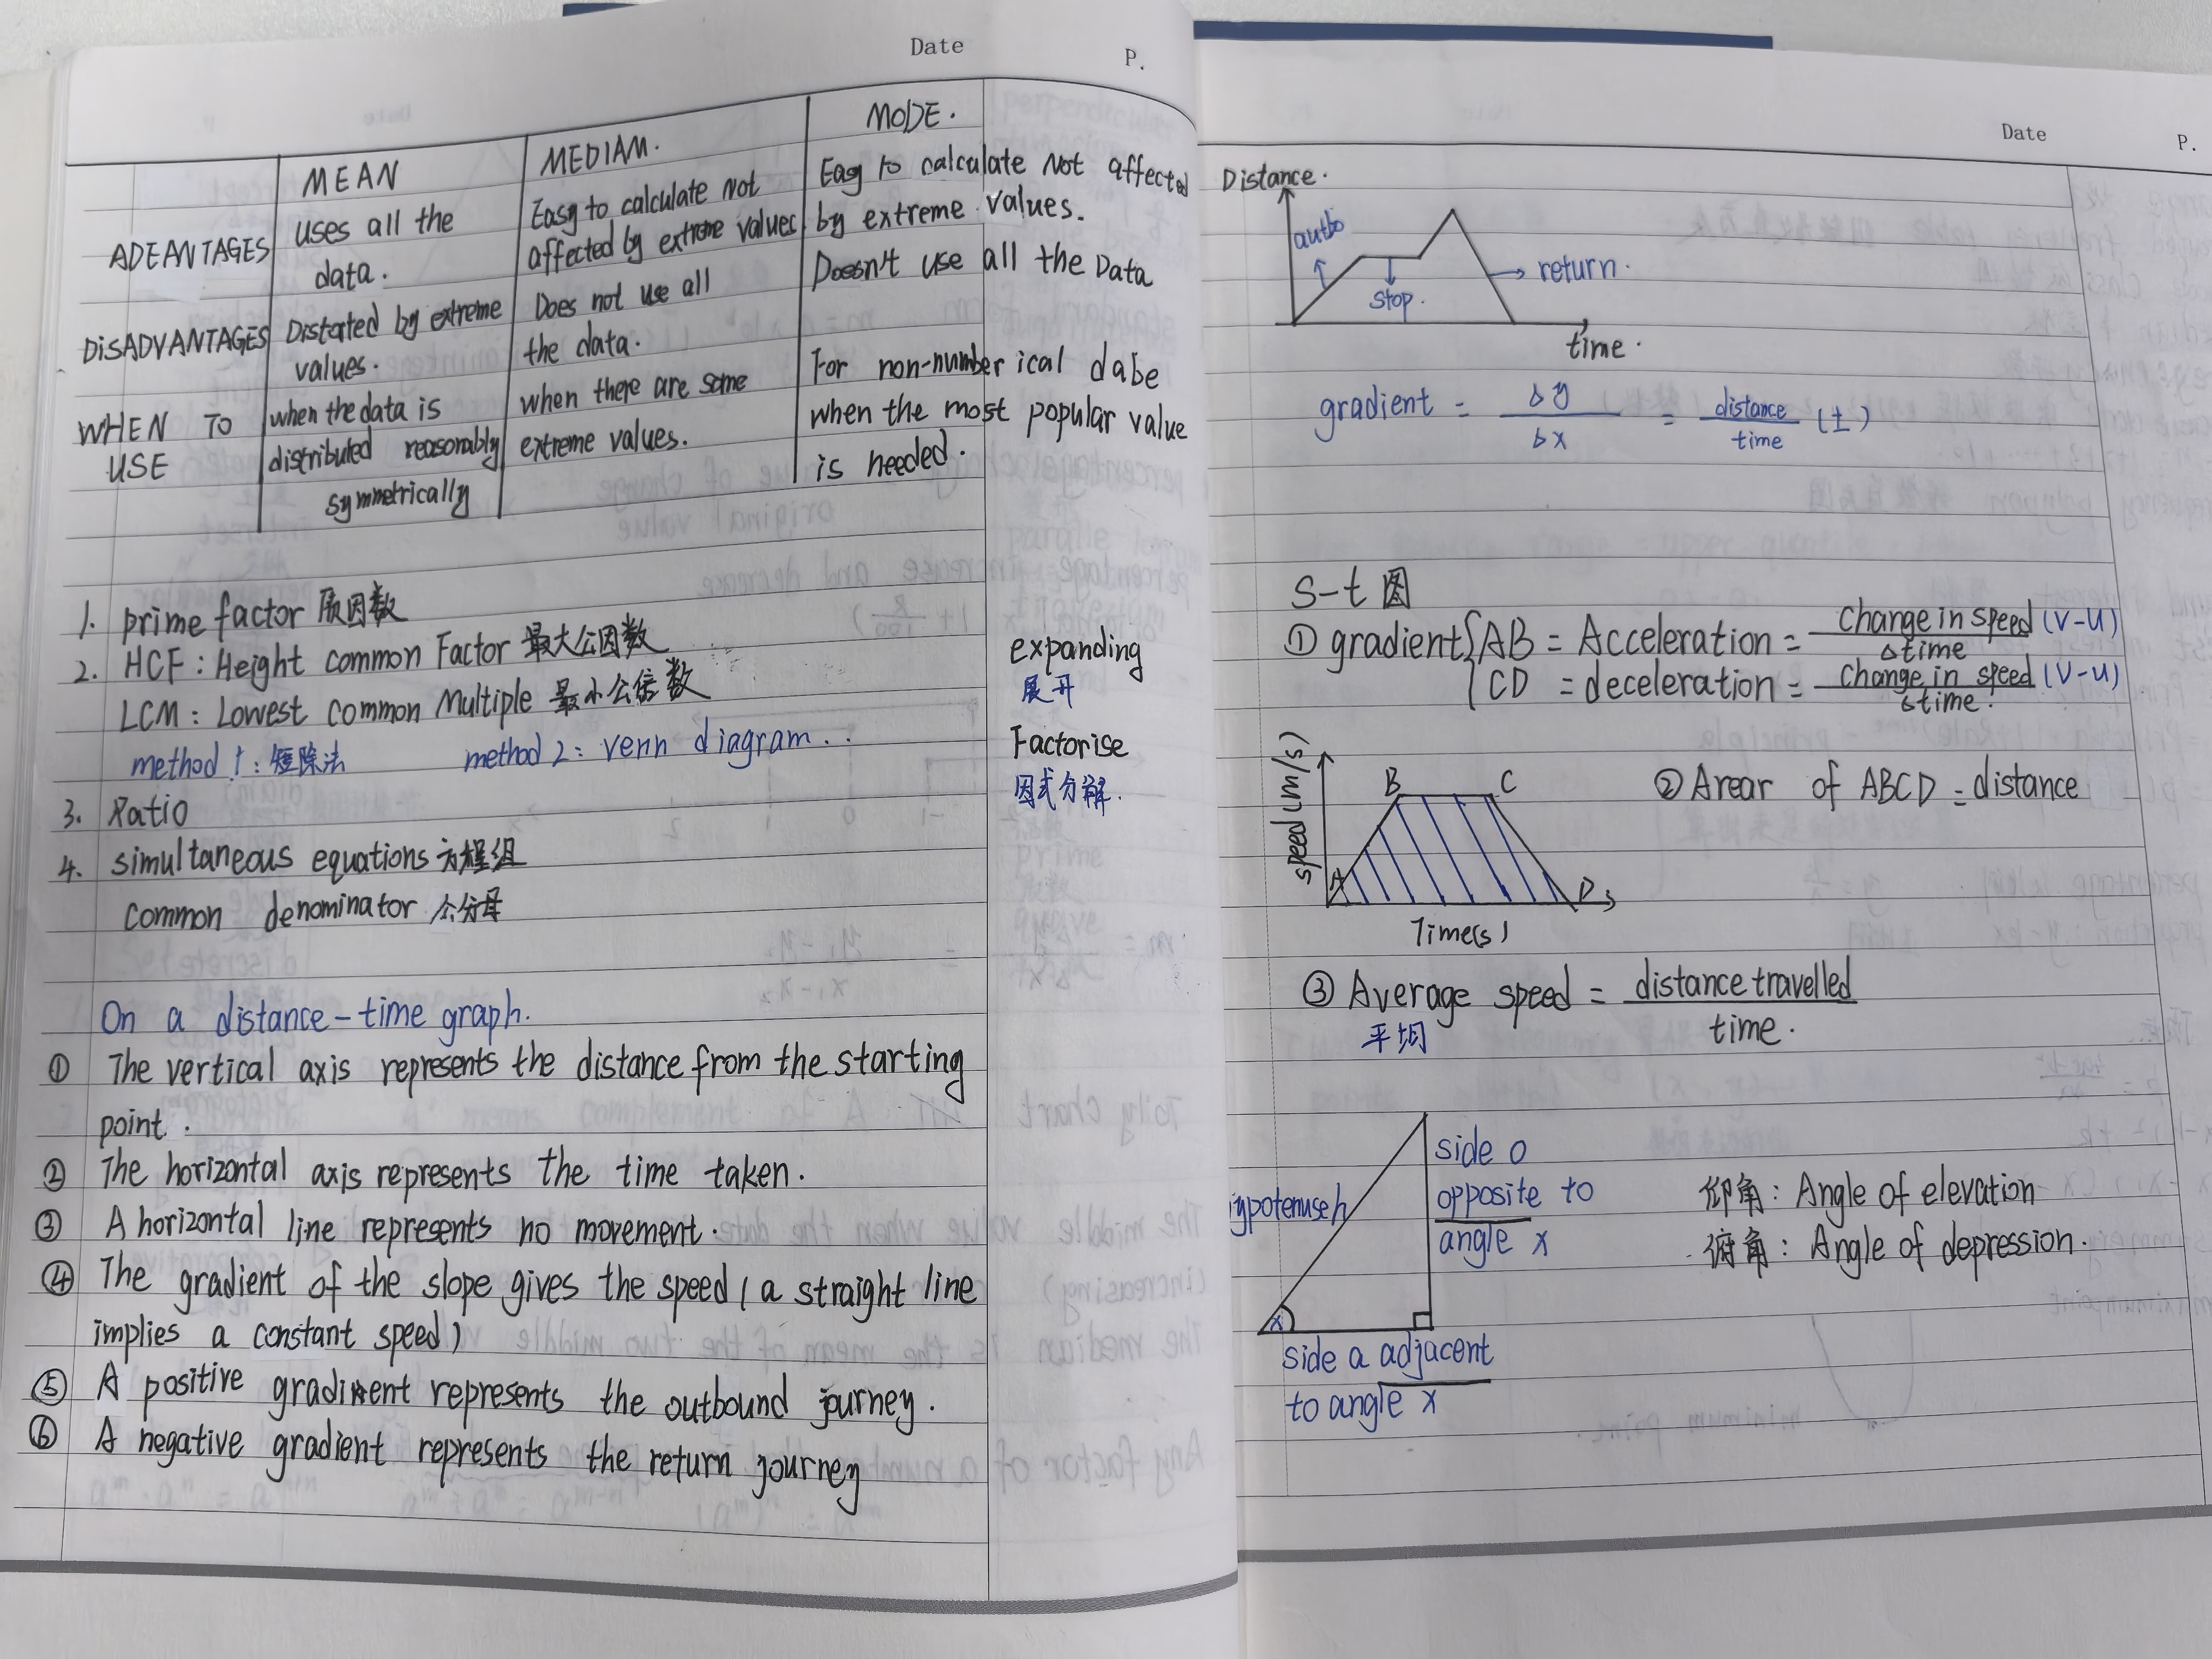 Date
P.
MEAN
MEDIAM.
MODE.
ADEANTAGES
uses all the
data.
Easy to calculate Not
affected by extreme values
Easy to calculate Not affected
by extreme values.
DiSADVANTAGES
Distarted by extreme
values.
Does not use all
the data.
Doesn't use all the Data
WHEN TO
USE
when the data is
distributed reasonably
symmetrically
when there are some
extreme values.
For non-number ical dabe
when the most popular value
is needed.
1. prime factor 质因数
2. HCF : Height common Factor 最大公因数
LCM : Lowest common Multiple 最小公倍数
method 1 : 短除法 method 2 : venn diagram..
3. Ratio
4. simultaneous equations 方程组
common denominator 公分母
expanding
展开
Factorise
因式分解.
On a distance-time graph.
① The vertical axis represents the distance from the starting
point.
② The horizontal axis represents the time taken.
③ A horizontal line represents no movement.
④ The gradient of the slope gives the speed ( a straight line
implies a constant speed )
⑤ A positive gradient represents the outbound journey.
⑥ A negative gradient represents the return journey
Date
P.
Distance.
stop.
return.
time.
gradient = Δy / Δx = distance / time (±)
S-t 图
① gradient { AB = Acceleration = change in speed (V-U) / Δtime
CD = deceleration = change in speed (V-U) / Δtime.
speed (m/s)
A
B
C
D
Time(s)
② Arear of ABCD = distance
③ Average speed = distance travelled / time.
平均
side o
opposite to
angle x
ypotenuse h
x
side a adjacent
to angle x
仰角 : Angle of elevation
俯角 : Angle of depression.